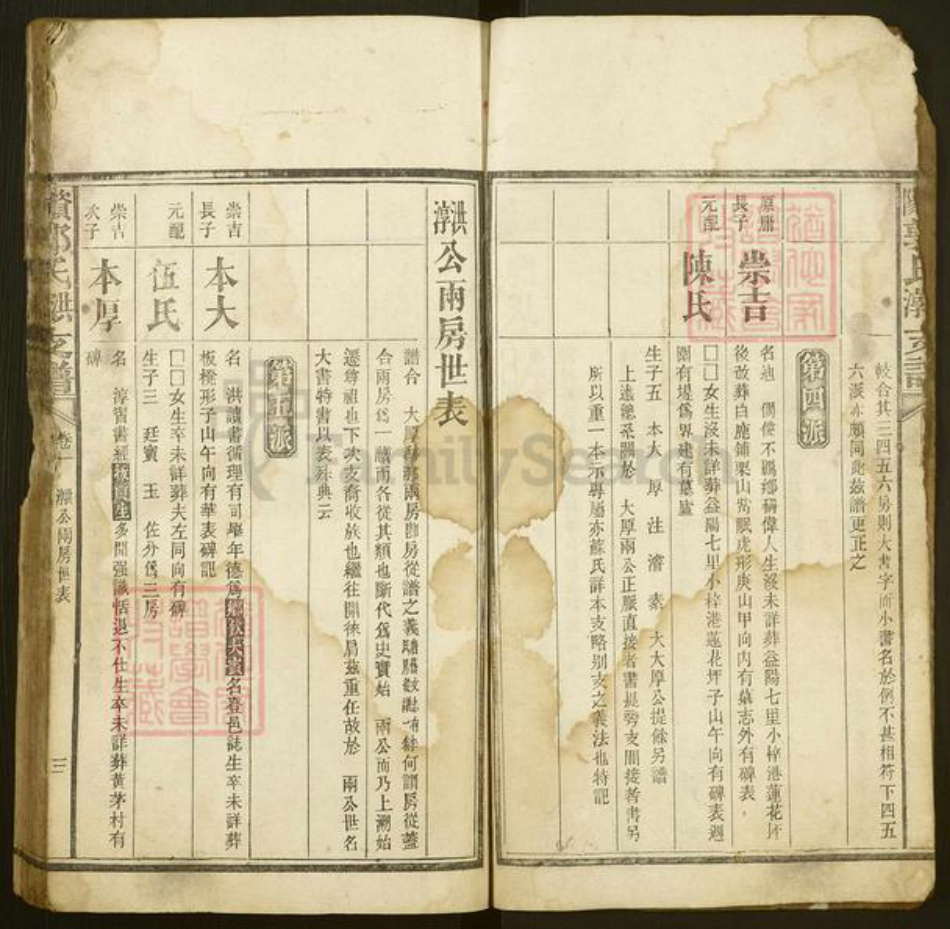 較合其三四五六房則大書字而小書名於例不甚相符下四五
六派亦願同此茲譜更正之
第四派
原庸
長子
崇吉
名迪 倜儻不羈鄉稱偉人生沒未詳葬益陽七里小梓港蓮花坪
後改葬白鹿鋪栗山嘴眠虎形庚山甲向內有墓志外有碑表
元配
陳氏
□□女生沒未詳葬益陽七里小梓港蓮花坪子山午向有碑表週
圍有堤為界建有墓廬
生子五 本大 厚 注 濟 素 大大厚公提餘另譜
上遠聰系關於 大厚兩公正脈直接者書提旁支間接者書另
所以重一本示專屬亦蘇氏詳本支略別支之義法也特記
洪
漭公兩房世表
譜合 大厚
合兩房為一牘而各從其類也斷代為史實始 兩公而乃上溯始
遷尊祖也下次支裔收族也繼往開徠局茲重任故於 兩公世名
大書特書以表殊典云
第五派
崇吉
長子
本大
名 洪讀書循理有司舉年德為鄉飲大賓名登邑誌生卒未詳葬
板櫈形子山午向有華表碑記
元配
伍氏
□□女生卒未詳葬夫左同向有碑
生子三 廷賓 玉 佐分為三房
崇吉
次子
本厚
名 淳習書經 多聞强識恬退不仕生卒未詳葬黃茅村有
碑
卷一
公兩房世表
三
FamilySearch